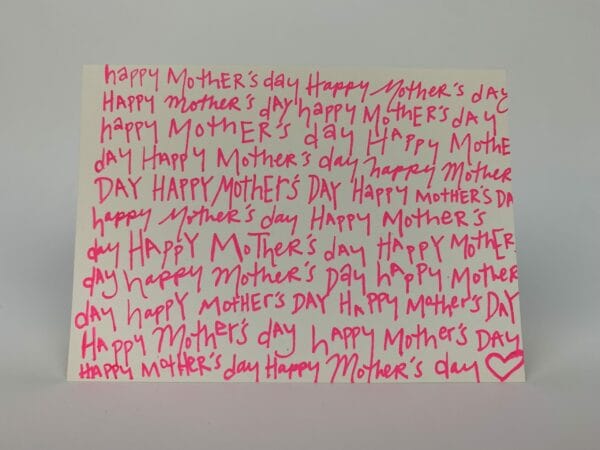 happy MotHER's day Happy Mother's day
HAPPY mother's dAY happy MOTHER'S dAY
happy MOTHER'S day HAPPY MOTHE
dAY HAppy Mother's day happy Mother
DAY HAPPY MOtHEr'S DAY Happy MOTHER'S DA
happy Mother's day HAPPY MotHer's
day HAPPY MoTher's day HAPPY MotHER
day happy mother's Day happy Mother
day happY MOtHEr'S DAY HAppy Mother's DAY
HAppy Mother's day happy Mother's DAY
HAPPY MOTHER'S day Happy Mother's day ♡